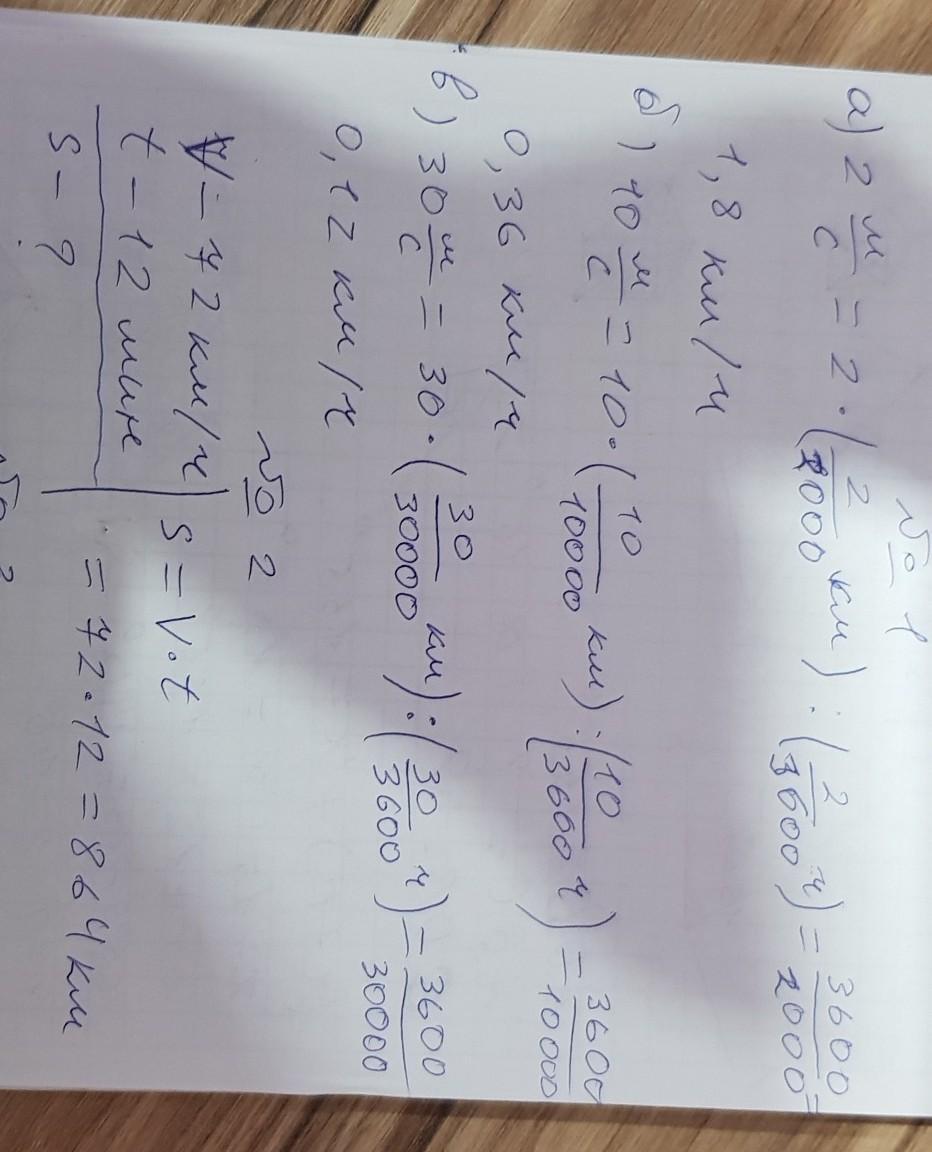 № 1
а) 2 м/с = 2 · (2/2000 км) : (2/3600 ч) = 3600/2000 =
1,8 км/ч
б) 10 м/с = 10 · (10/10000 км) : (10/3600 ч) = 3600/10000
0,36 км/ч
в) 30 м/с = 30 · (30/30000 км) : (30/3600 ч) = 3600/30000
0,12 км/ч
№ 2
V – 72 км/ч | S = V · t
t – 12 мин
S – ? = 72 · 12 = 864 км